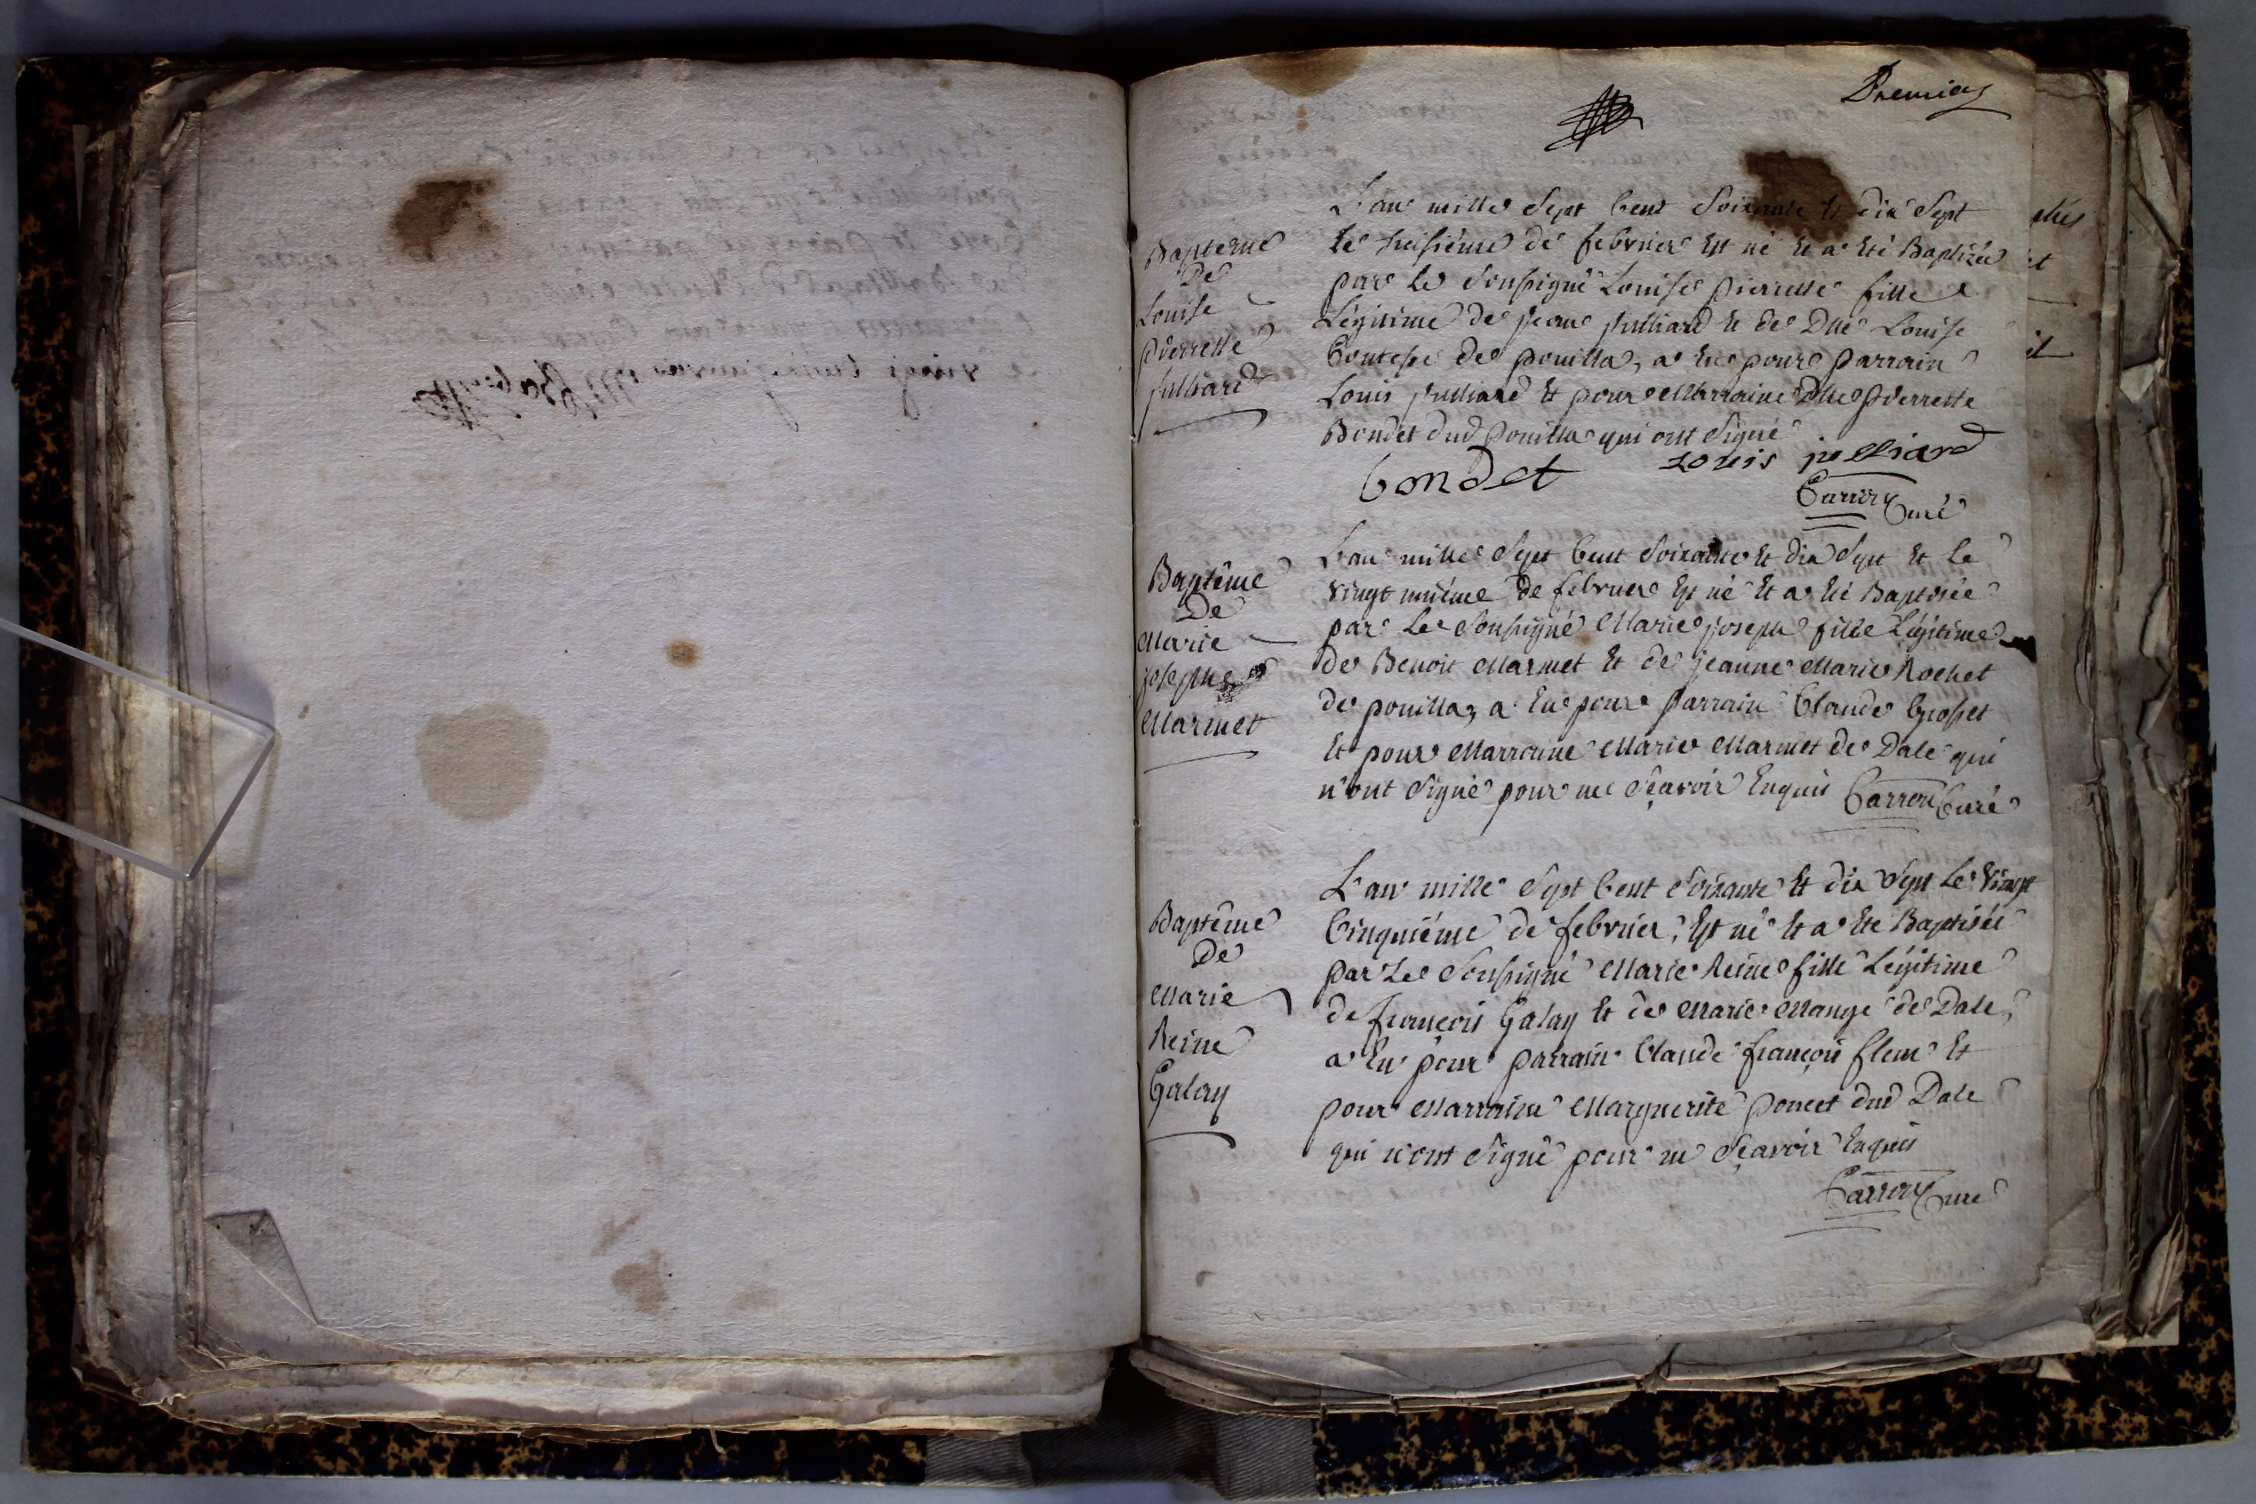 Premier
L'an mille Sept Cent Soixante Et dix Sept
le treisième de febvrier Est né Et a Eté Baptizée
par le Soussigné Louise pierrette fille
Légitime de jean julliard Et de Dlle Louise
de pouilla, a Eu pour parrain
Louis julliard Et pour Marraine Dlle pierrette
Bondet dud pouilla qui ont Signé
Bondet Louis julliard
Carron Curé
Baptême
De
Louise
pierrette
julliard
L'an mille Sept Cent Soixante Et dix Sept Et le
vingt de febvrier Est né Et a Eté Baptisée
par Le Soussigné Marie joseph fille Légitime
de Benoit Marmet Et de jeanne Marie Rochet
de pouilla, a Eu pour parrain Claude Grosset
Et pour Marraine Marie Marmet de Dale qui
n'ont Signé pour ne Sçavoir Enquis Carron Curé
Baptême
De
Marie
josephe
Marmet
L'an mille Sept Cent Soixante Et dix Sept Le vingt
Cinquième de febvrier, Est né Et a Eté Baptisée
par Le Soussigné Marie Reine fille Légitime
de françois Galay Et de Marie Mange de Dale,
a Eu pour parrain Claude françois Et
pour Marraine Marguerite poncet dud Dale
qui n'ont Signé pour ne Sçavoir Enquis
Carron Curé
Baptême
De
Marie
Reine
Galay